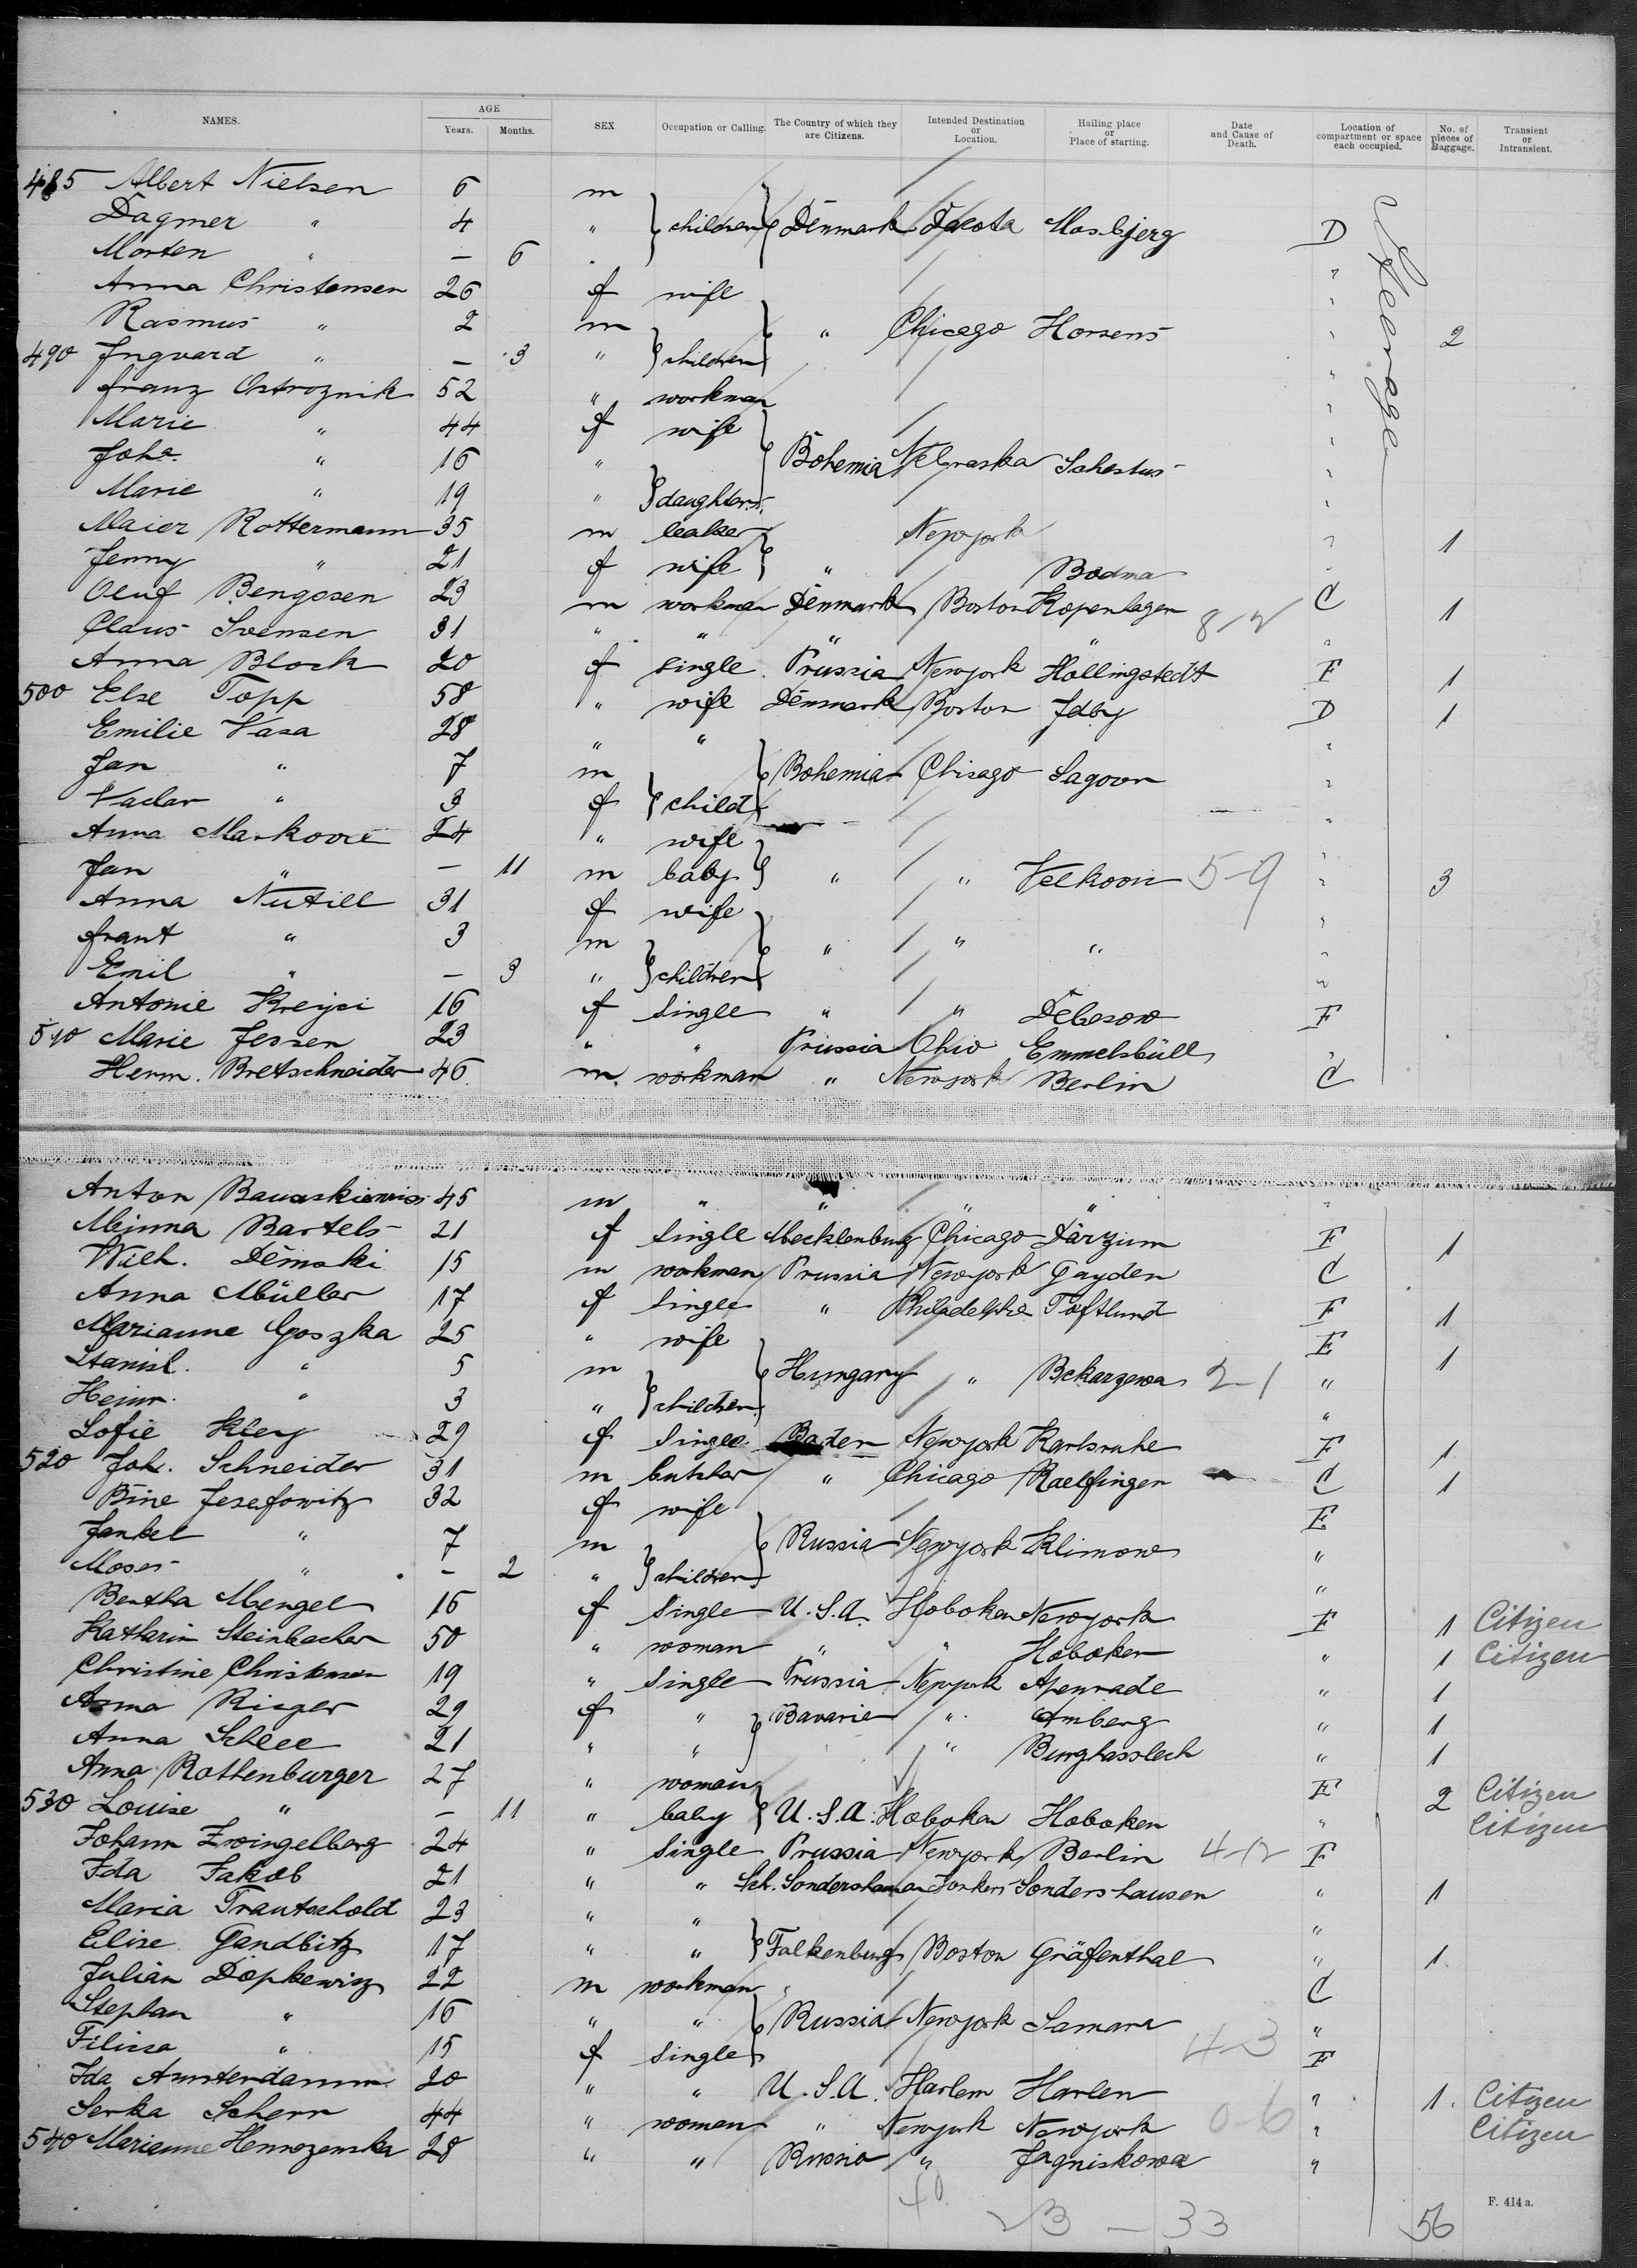 NAMES. AGE Years. Months. SEX Occupation or Calling. The Country of which they are Citizens. Intended Destination or Location. Hailing place or Place of starting. Date and Cause of Death. Location of compartment or space each occupied. No. of pieces of Baggage. Transient or Intransient.
485 Albert Nielsen 6 m
Dagmer " 4 " children Denmark Dacota Mosbjerg D
Morten " — 6 "
Anna Christensen 26 f wife "
Rasmus " 2 m " Chicago Horsens " 2
490 Ingvard " — 3 " children "
Franz Ostroznik 52 " workman "
Marie " 44 f wife "
Joha. " 16 " Bohemia Nebraska Sahestus "
Marie " 19 " daughters "
Maier Rottermann 35 m Newyork " 1
Jenny " 21 f wife " Bodma "
Oluf Bengosen 23 m workman Denmark Boston Kopenhagen C 1
Claus Svensen 31 " " " " " 8-12 "
Anna Block 20 f single Prussia Newyork Hollingstedt F 1
500 Else Topp 58 " wife Denmark Boston Jdby D 1
Emilie Vasa 28 " " "
Jan " 7 m Bohemia Chicago Sagoor "
Vaclav " 3 f child "
Anna Markovic 24 " wife "
Jan " — 11 m baby " " Velkoon 5-9 " 3
Anna Nutill 31 f wife "
Frant " 3 m " " " "
Emil " — 3 " children "
Antonie Krejci 16 f single " " Debesow F
510 Marie Jessen 23 " " Prussia Ohio Emmelsbüll "
Herm. Bretschneider 46 m workman " Newyork Berlin C
Steerage
Anton 45 m " " " " "
Minna Bartels 21 f single Mecklenburg Chicago Därzum F 1
Wilh. Demski 15 m workman Prussia Newyork Gayden C
Anna Müller 17 f single " Philadelphia Toftlund F 1
Marianne Goszka 25 " wife E
Stanisl. " 5 m Hungary " Bekarzewa 2-1 " 1
Heinr. " 3 " children "
Sofie Kley 29 f single Baden Newyork Karlsruhe F 1
520 Joh. Schneider 31 m butcher " Chicago Raelfingen C 1
Bine Jesefowitz 32 f wife E
Jankel " 7 m Russia Newyork Klimow "
Moses " — 2 " children "
Bertha Mengel 16 f single U.S.A. Hoboken Newyork F 1 Citizen
Katharin Steinbacher 50 " woman " " Hoboken " 1 Citizen
Christine Christensen 19 " single Prussia Newyork Apenrade " 1
Anna Rieger 29 f " Bavaria " Amberg " 1
Anna Schlee 21 " " " Burghasslach " 1
Anna Rothenburger 27 " woman E 2 Citizen
530 Louise " — 11 " baby U.S.A. Hoboken Hoboken " Citizen
Johann Zwingelberg 24 " single Prussia Newyork Berlin 4-12 F
Ida Jakob 21 " " Sch. Sondershausen Yonkers Sondershausen " 1
Maria Trautschold 23 " " "
Elise Gandbitz 17 " " Falkenburg Boston Gräfenthal " 1
Julian Dopkewicz 22 m workman C
Stephan " 16 " " Russia Newyork Samara "
15 f single 4-3 F
Ida Amsterdamm 20 " " U.S.A. Harlem Harlem " 1. Citizen
Serka Scherr 44 " woman " Newyork Newyork 0-6 " Citizen
540 Marianne 28 " " Russia " Jagniskowa "
40
3 — 33
56
F. 414 a.